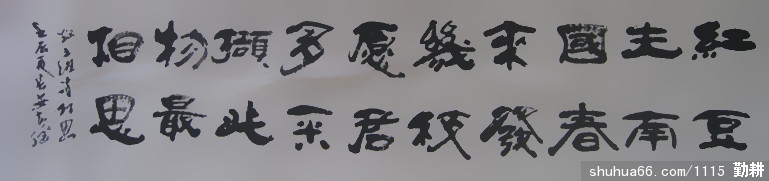 紅豆
生南
國春
來發
幾枝
愿君
多采
擷此
物最
相思
王維詩相思
壬辰夏
shuhua66.com/1115 勤耕